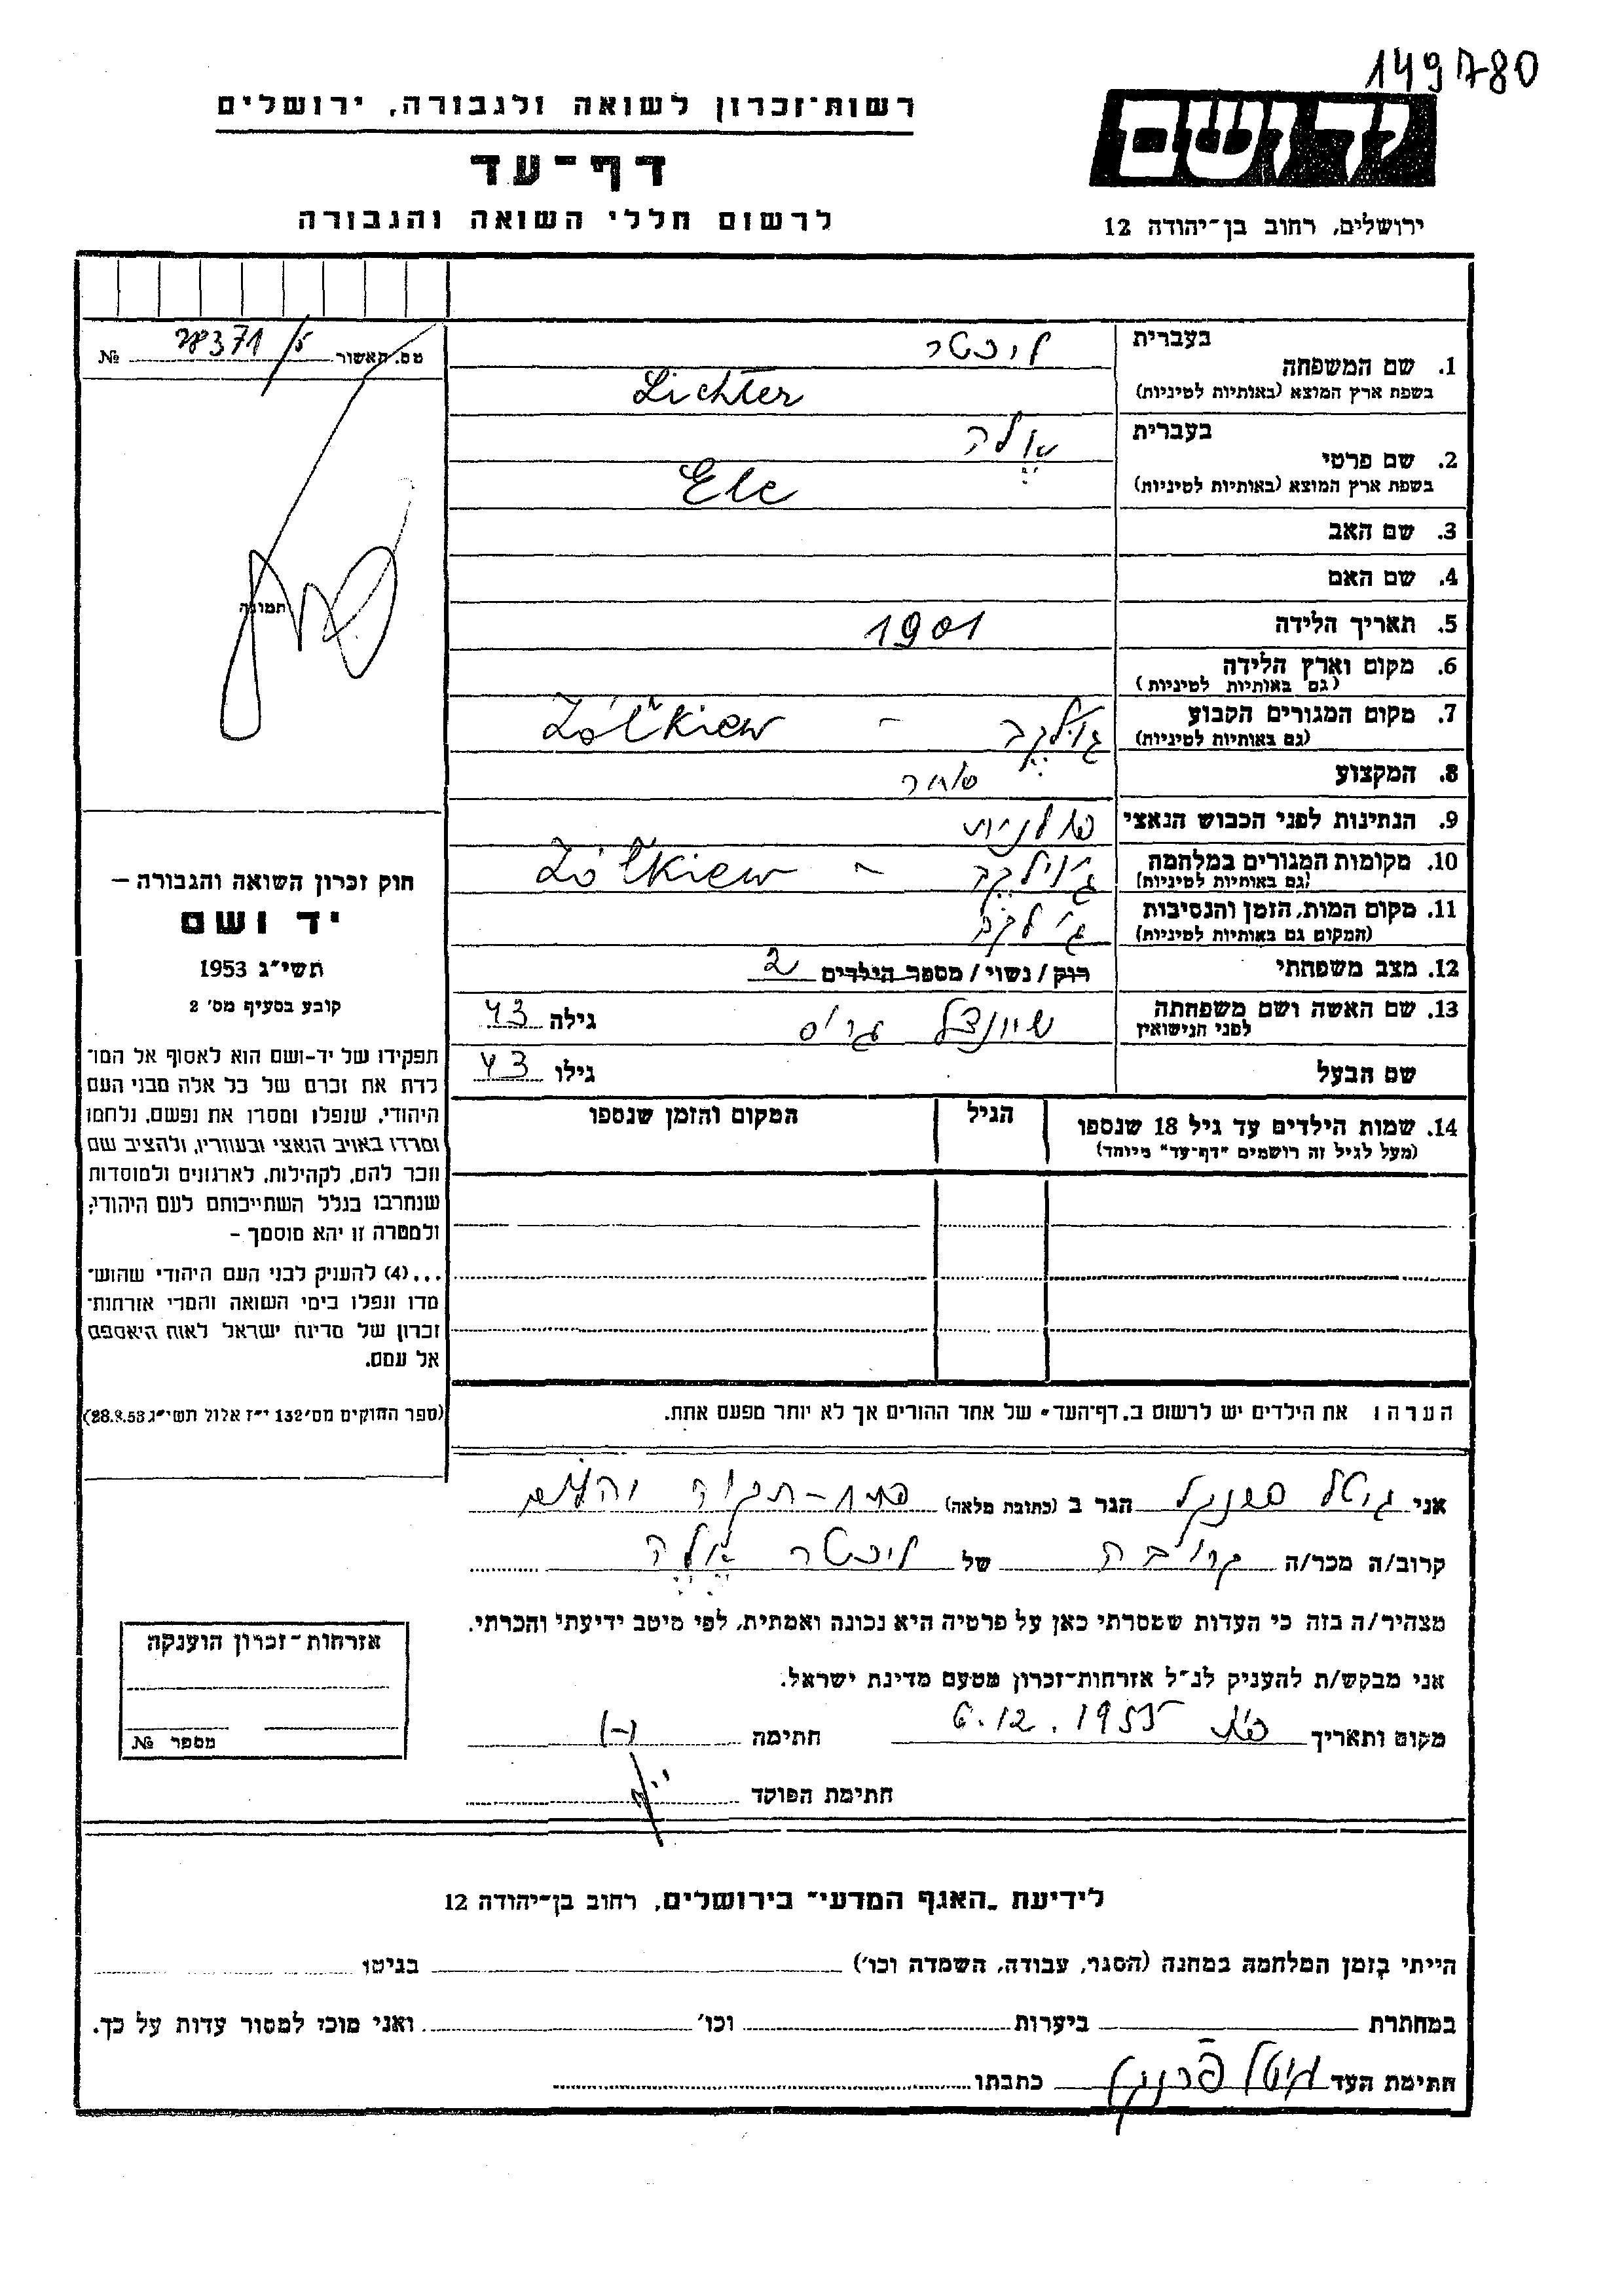 149780
רשות־זכרון לשואה ולגבורה, ירושלים
יד ושם
דף־עד
לרשום חללי השואה והגבורה
ירושלים, רחוב בן־יהודה 12
מס. האשור 28371/5 №
תמונה
1. שם המשפחה
בעברית ליכטר
בשפת ארץ המוצא (באותיות לטיניות) Lichter
2. שם פרטי
בעברית אלה
בשפת ארץ המוצא (באותיות לטיניות) Ele
3. שם האב
4. שם האם
5. תאריך הלידה 1901
6. מקום וארץ הלידה
(גם באותיות לטיניות)
7. מקום המגורים הקבוע Żółkiew -
(גם באותיות לטיניות)
8. המקצוע סוחר
9. הנתינות לפני הכבוש הנאצי פולנית
10. מקומות המגורים במלחמה Żółkiew -
(גם באותיות לטיניות)
11. מקום המות, הזמן והנסיבות
(המקום גם באותיות לטיניות)
12. מצב משפחתי רווק/נשוי/מספר הילדים 2
13. שם האשה ושם משפחתה שיינצל גילה 43
לפני הנישואין
שם הבעל גילו 43
14. שמות הילדים עד גיל 18 שנספו הגיל המקום והזמן שנספו
(מעל לגיל זה רושמים "דף־עד" מיוחד)
הערה: את הילדים יש לרשום ב„דף־העד" של אחד ההורים אך לא יותר מפעם אחת.
חוק זכרון השואה והגבורה –
יד ושם
תשי"ג 1953
קובע בסעיף מס' 2
תפקידו של יד-ושם הוא לאסוף אל המו־
לדת את זכרם של כל אלה מבני העם
היהודי, שנפלו ומסרו את נפשם, נלחמו
ומרדו באויב הנאצי ובעוזריו, ולהציב שם
וזכר להם, לקהילות, לארגונים ולמוסדות
שנחרבו בגלל השתייכותם לעם היהודי;
ולמטרה זו יהא מוסמך –
...(4) להעניק לבני העם היהודי שהוש־
מדו ונפלו בימי השואה והמרי אזרחות־
זכרון של מדינת ישראל לאות היאספם
אל עמם.
(ספר החוקים מס' 132 י"ז אלול תשי"ג 28.8.53)
אני גיטל פרנקל הגר ב (כתובת מלאה) פתח-תקוה
קרוב/ה מכר/ה קרובה של ליכטר אלה
מצהיר/ה בזה כי העדות שמסרתי כאן על פרטיה היא נכונה ואמתית, לפי מיטב ידיעתי והכרתי.
אני מבקש/ת להעניק לנ"ל אזרחות־זכרון מטעם מדינת ישראל.
מקום ותאריך פ"ת 6.12.1955 חתימה (-)
חתימת הפוקד
אזרחות־זכרון הוענקה
מספר №
לידיעת „האגף המדעי" בירושלים, רחוב בן־יהודה 12
הייתי בזמן המלחמה במחנה (הסגר, עבודה, השמדה וכו') בגיטו
במחתרת ביערות וכו' ואני מוכן למסור עדות על כך.
חתימת העד גיטל פרנקל כתבתו